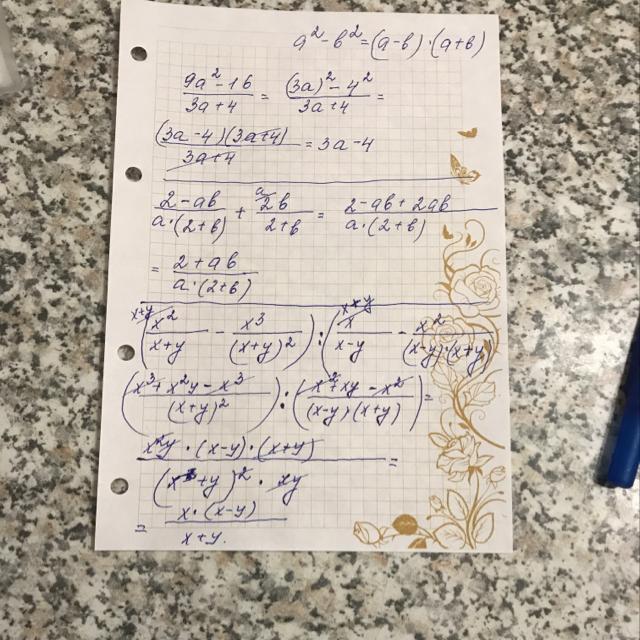 a² - b² = (a-b)·(a+b)
(9a² - 16)/(3a+4) = ((3a)² - 4²)/(3a+4) =
((3a-4)(3a+4))/(3a+4) = 3a-4
(2-ab)/(a·(2+b)) + (2b)/(2+b) ᵃ⁄ = (2-ab+2ab)/(a·(2+b))
= (2+ab)/(a·(2+b))
ˣ⁺ʸ⁄ (x²/(x+y) - x³/(x+y)²) : (ˣ⁺ʸ⁄ x/(x-y) - x²/((x-y)·(x+y))
((x³+x²y-x³)/(x+y)²) : ((x²+xy-x²)/((x-y)(x+y))) =
(x²y·(x-y)·(x+y))/((x+y)²·xy) =
= (x·(x-y))/(x+y).